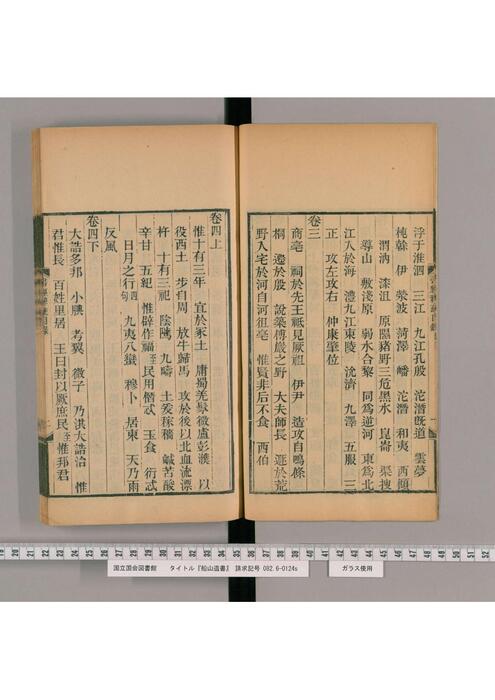 浮于淮泗　三江　九江孔殷　沱潛旣道　雲夢
杶榦　伊　滎波　菏澤　嶓　沱潛　和夷　西傾
渭汭　漆沮　原隰豬野三危黑水　崑崙　渠搜
導山　敷淺原　弱水合黎　同爲逆河　東爲北
江入於海　澧九江東陵　沇濟　九澤　五服　三
正　攻左攻右　仲康肇位
卷三
商亳　祠於先王祗見厥祖　伊尹　造攻自鳴條
桐　遷於殷　說築傅巖之野　大夫師長　遯於荒
野入宅於河自河徂亳　惟賢非后不食　西伯
卷四上
惟十有三年　宜於冢土　庸蜀羌髳微盧彭濮　以
役西土　步自周　放牛歸馬　攻於後以北血流漂
杵　十有三祀　陰隲　九疇　土爰稼穡　鹹苦酸
辛甘　五紀　惟辟作福至民用僭忒　玉食　衍忒
日月之行四句　九夷八蠻　穆卜　居東　天乃雨
反風
卷四下
大誥多邦　小腆　考翼　微子　乃洪大誥治　惟
君惟長　百姓里居　王曰封以厥庶民至惟邦君
国立国会図書館　タイトル『船山遺書』　請求記号 082.6-0124s　ガラス使用